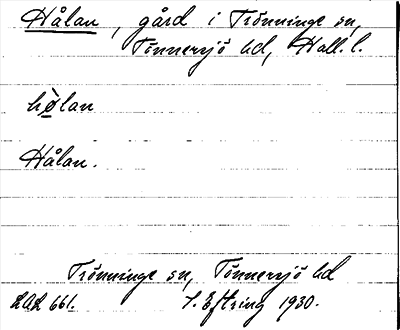 Hålan, gård i Trönninge sn,
Tönnersjö hd, Hall. l.
hølan
Hålan.
Trönninge sn, Tönnersjö hd
LAL 661. J. Eftring 1930.